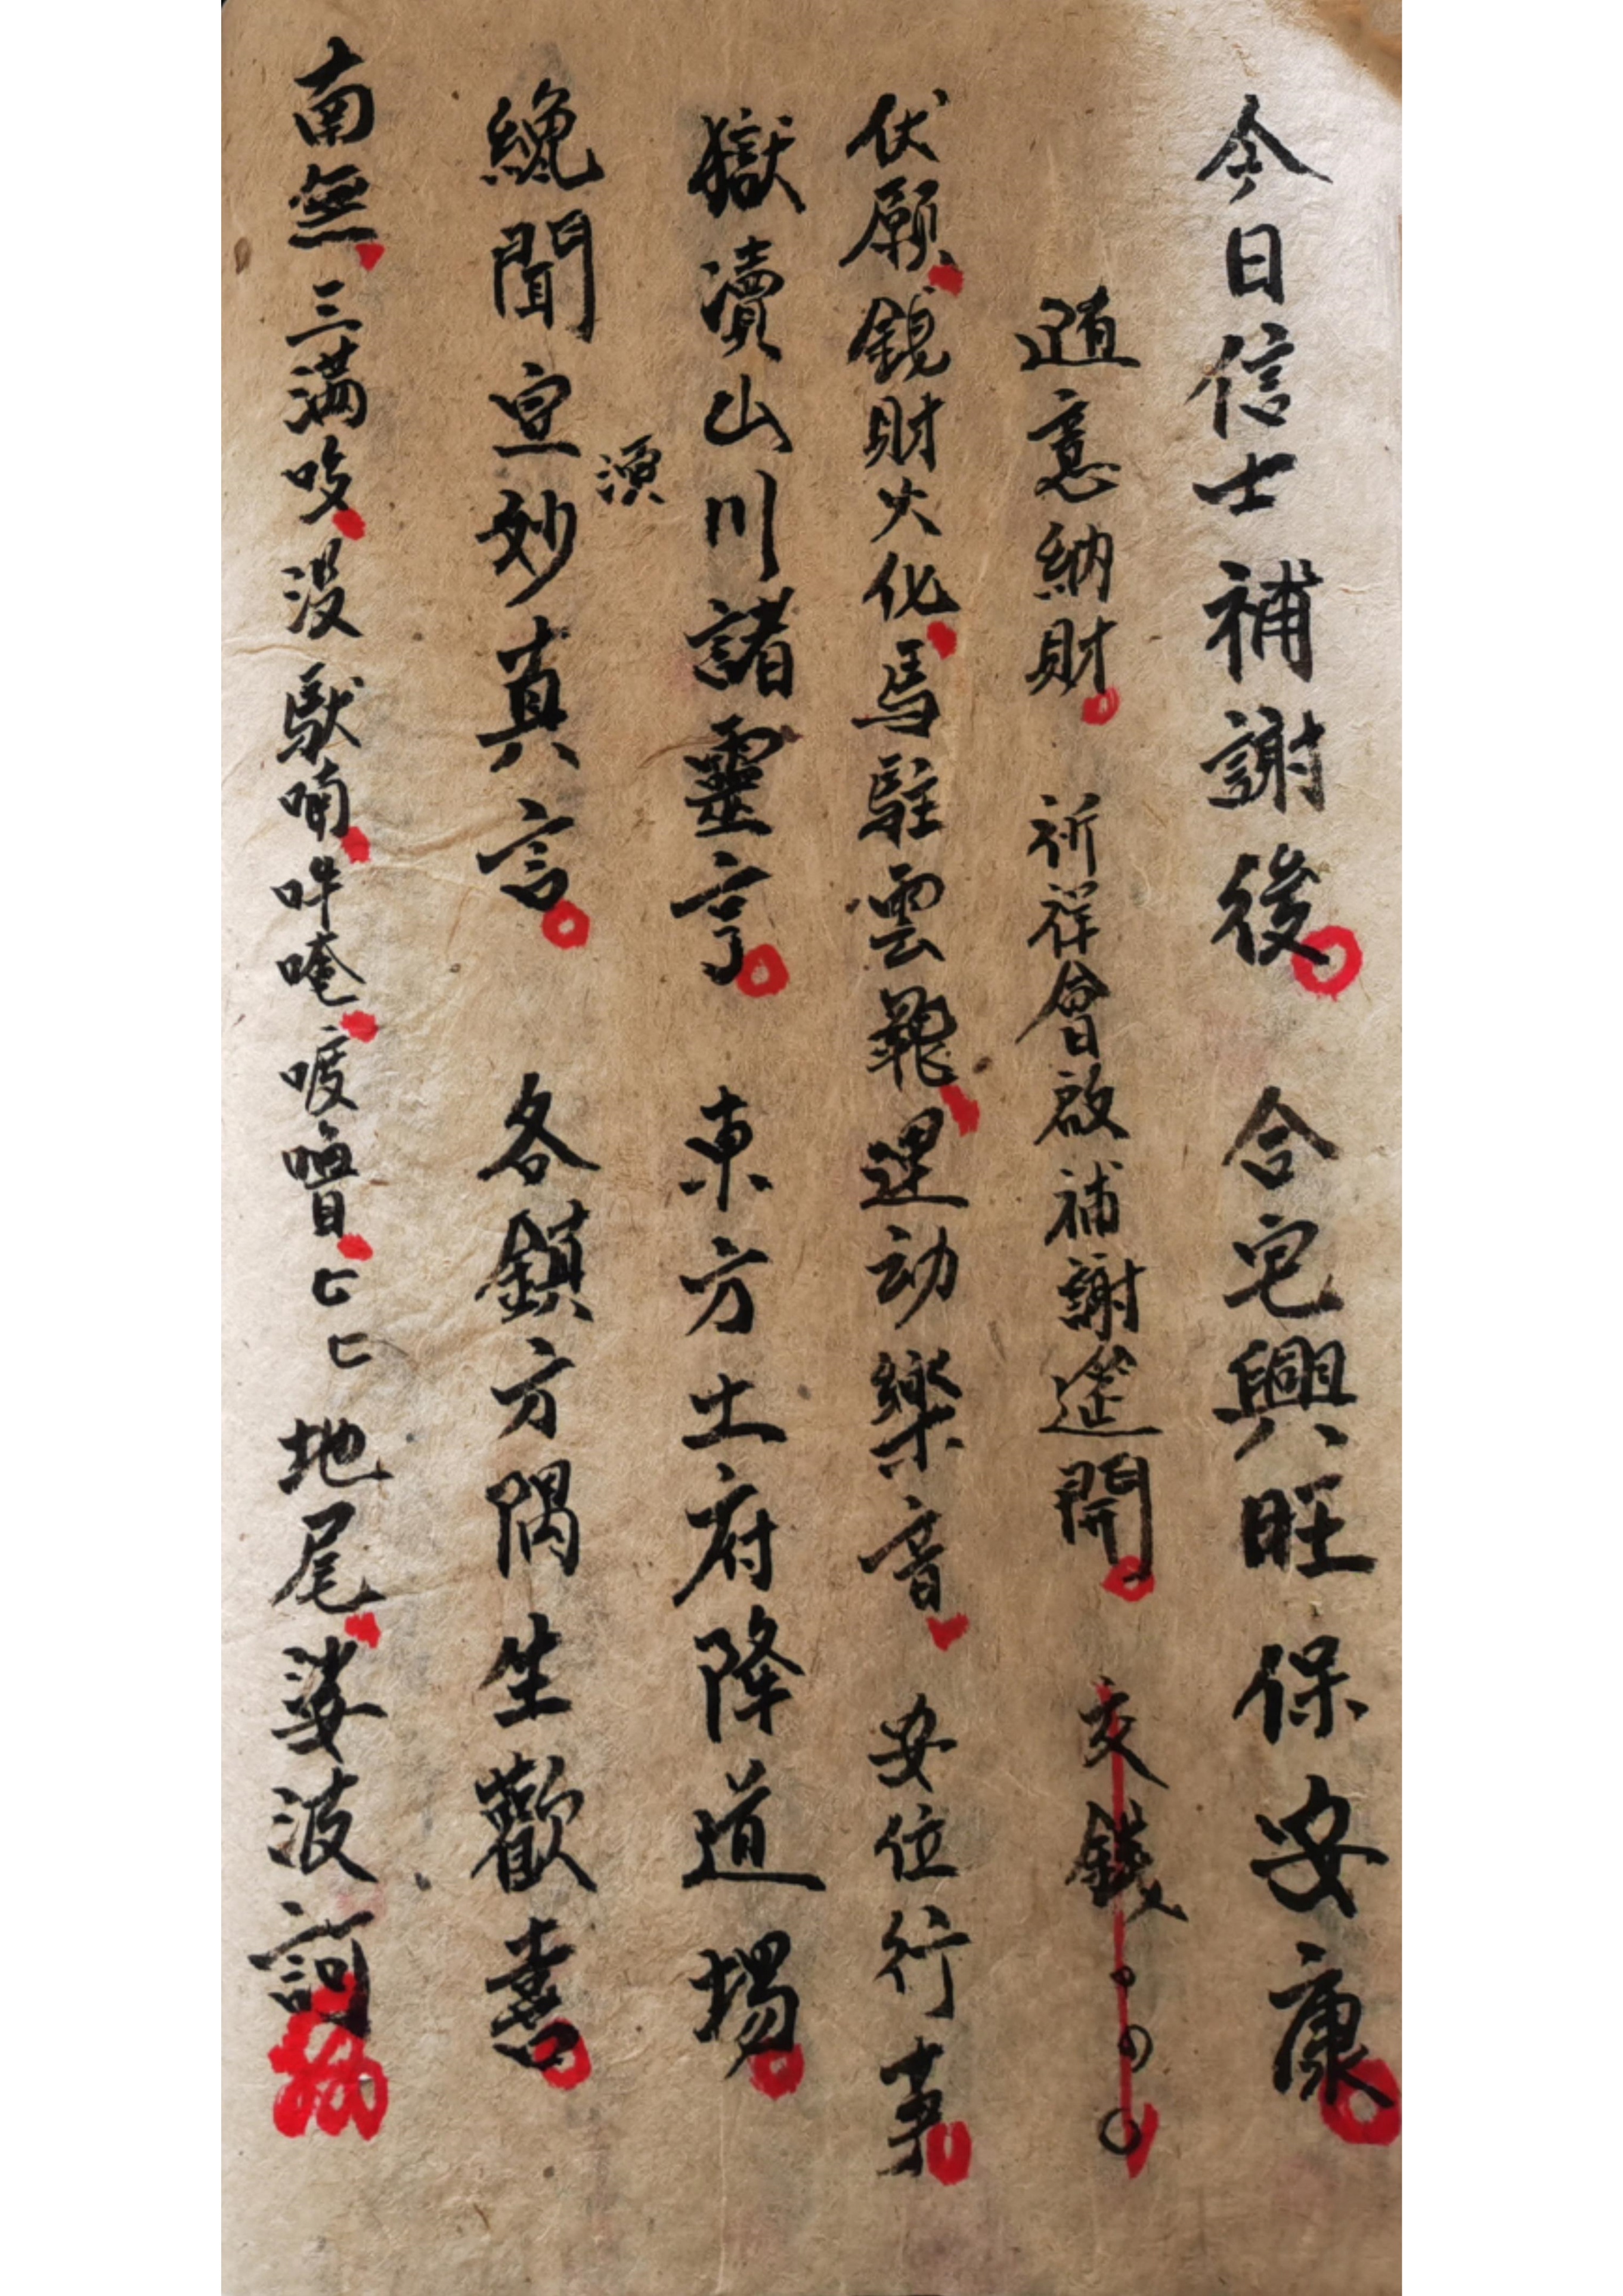 今日信士補謝後 合宅興旺保安康
道意納財 祈祥會啟補謝筵開 交錢
伏願錢財火化馬駐雲 運动樂音 安位行茅
獄瀆山川諸靈享 東方土府降道場
纔聞宣妙真言 各鎮方隅生歡喜
南無三滿哆沒馱喃吽唵 地尾娑波訶